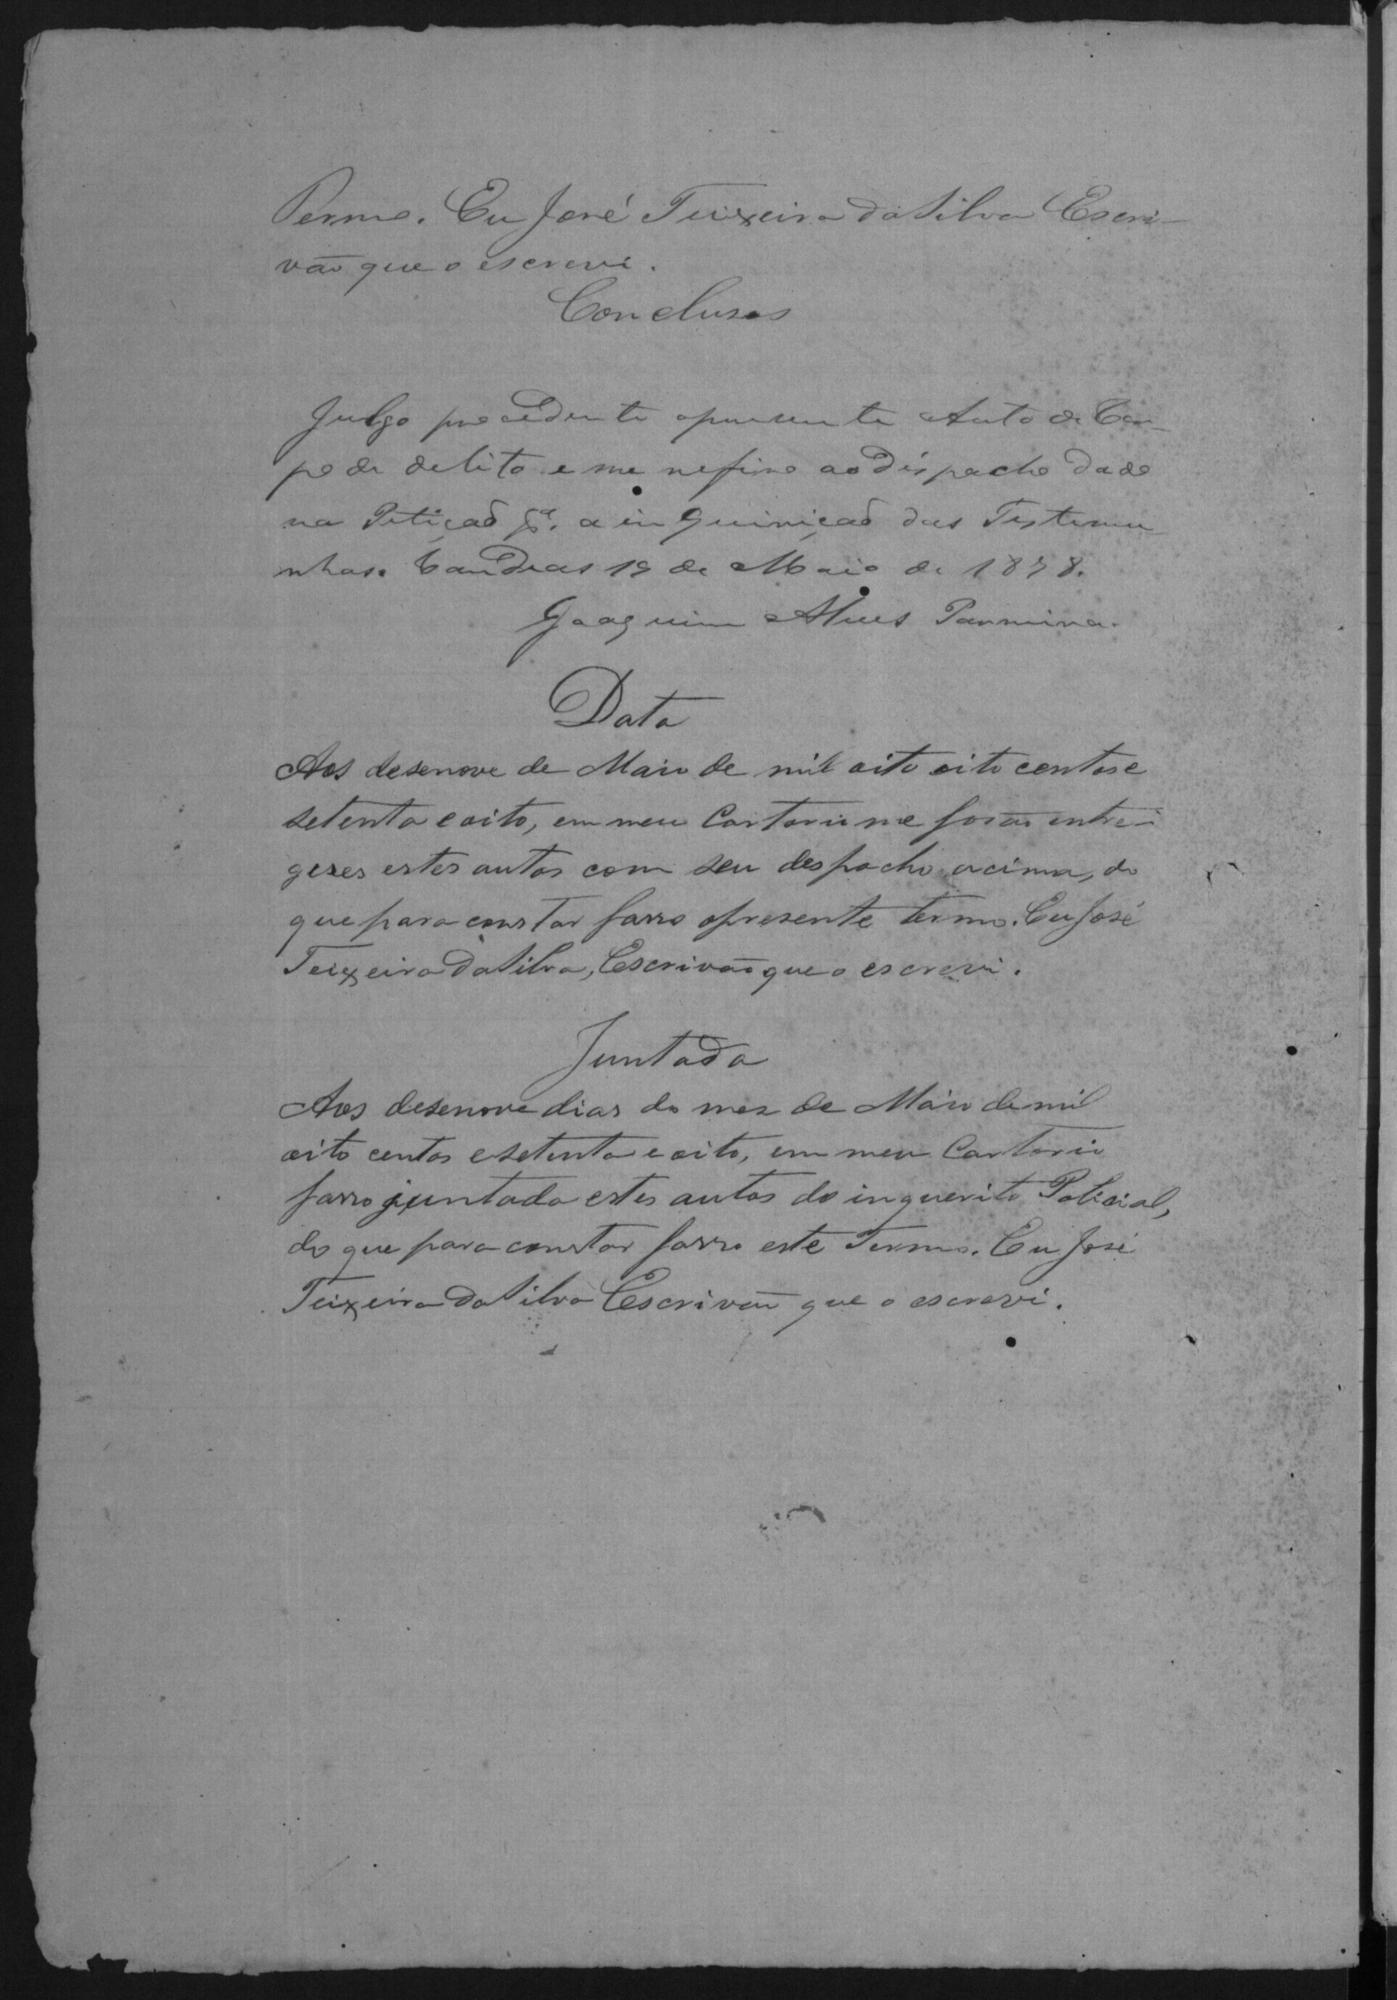 Termo. Eu José Teixeira da Silva Escri-
vão que o escrevi.
Conclusos
Julgo procedente opresente Auto de Cor-
po de delito e me refiro ao dispacho dado
na Petiçaõ pª. a inquiriçaõ das Testemu
nhas. Candeas 19 de Maio de 1878.
Joaquim Alves Parreira.
Data
Aos desenove de Maio de mil oito oito centos e
setenta e oito, em meu Cartorio me foraõ entre-
gues estes autos com seu despacho acima, do
que para constar fasso opresente termo. Eu José
Teixeira da Silva, Escrivaõ que o escrevi.
Juntada
Aos desenove dias do mez de Maio de mil
oito centos e setenta e oito, em meu Cartorio
fasso juntada estes autos do inquerito Policial,
do que para constar fasso este Termo. Eu José
Teixeira da Silva Escrivaõ que o escrevi.